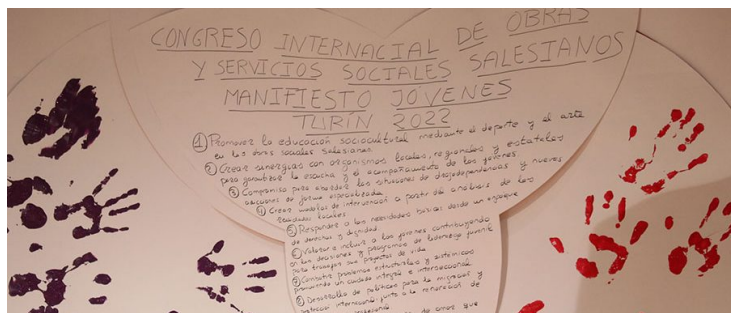 CONGRESO INTERNACIAL DE OBRAS
Y SERVICIOS SOCIALES SALESIANOS
MANIFIESTO JOVENES
TURÍN 2022
1 Promover la educación sociocultural mediante el deporte y el arte
en las obras sociales salesianas
2 Crear sinergias con organismos locales, regionales y estatales
para garantizar la escucha y el acompañamiento de los jóvenes
3 Compromiso para abordar las situaciones de drogodependencias y nuevas
adicciones de forma especializada
4 Crear modelos de intervención a partir del análisis de las
realidades locales
5 Responder a las necesidades básicas desde un enfoque
de derechos y dignidad
6 Valorar e incluir a los jóvenes contribuyendo
en las decisiones y programas de liderazgo juvenil
para trabajar sus proyectos de vida
7 Combatir problemas estructurales y sistémicos
promoviendo un cuidado integral e interseccional
8 Desarrollo de políticas para la migración y
protección internacional junto a la
de
que